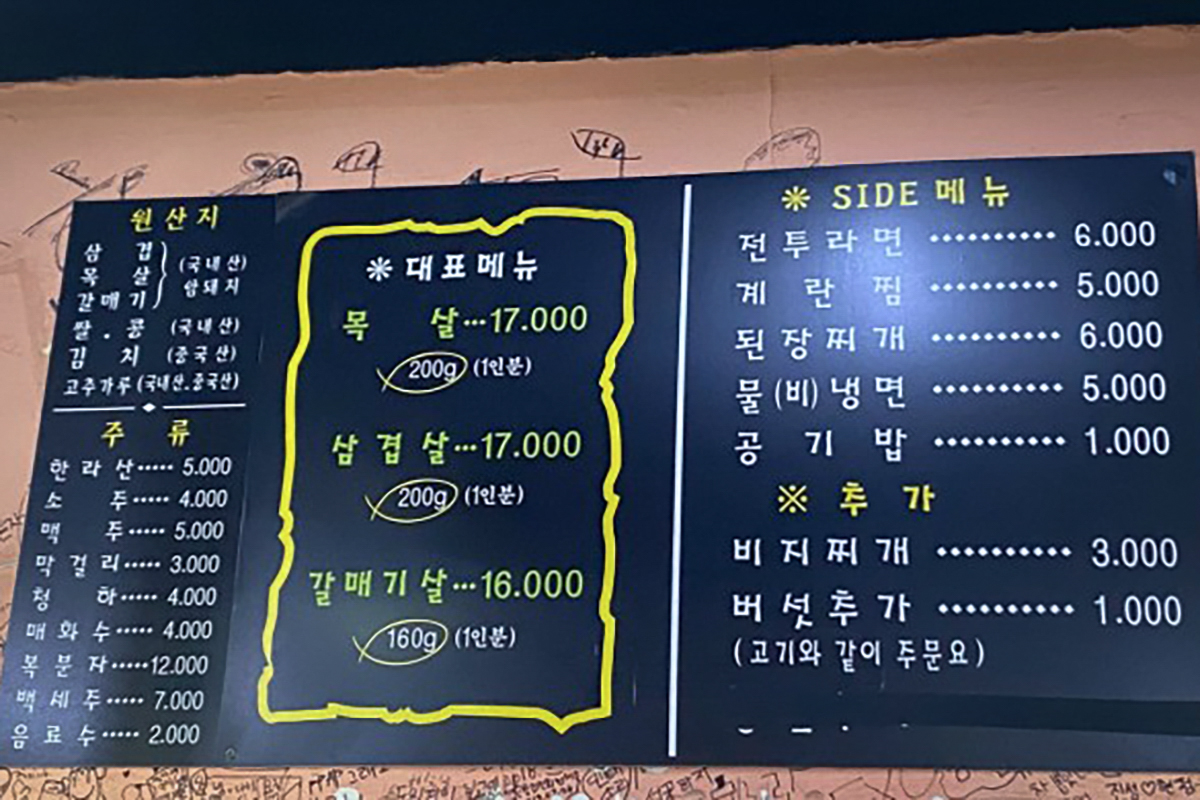 원산지
삼겹
목살
갈매기
(국내산)
암돼지
쌀.콩 (국내산)
김치 (중국산)
고추가루 (국내산.중국산)
주류
한라산····· 5.000
소주····· 4.000
맥주····· 5.000
막걸리····· 3.000
청하····· 4.000
매화수····· 4.000
복분자·····12.000
백세주····· 7.000
음료수····· 2.000
※ 대표메뉴
목살···17.000
200g (1인분)
삼겹살···17.000
200g (1인분)
갈매기살···16.000
160g (1인분)
※ SIDE 메뉴
전투라면 ·········· 6.000
계란찜 ·········· 5.000
된장찌개 ·········· 6.000
물(비)냉면 ·········· 5.000
공기밥 ·········· 1.000
※ 추가
비지찌개 ·········· 3.000
버섯추가 ·········· 1.000
(고기와 같이 주문요)